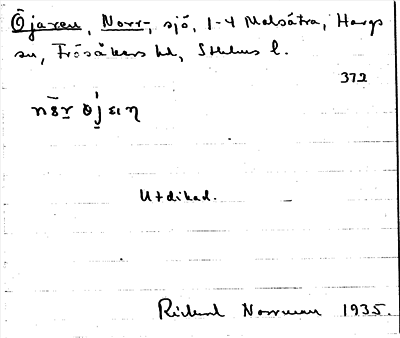 Öjaren, Norr-, sjö, 1-4 Malsätra, Hargs
sn, Frösåkers hd, Sthlms l.
372
Utdikad.
Rickard Norrman 1935.